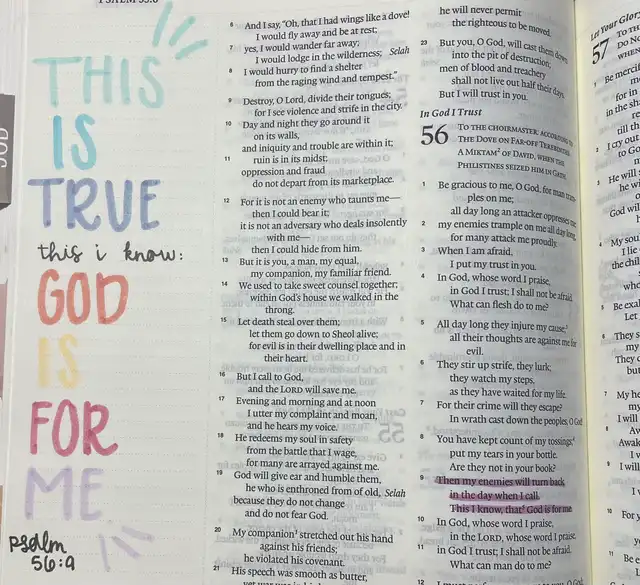 THIS
IS
TRUE
this i know:
GOD
IS
FOR
ME
psalm
56:9
6 And I say, "Oh, that I had wings like a dove!
I would fly away and be at rest;
7 yes, I would wander far away;
I would lodge in the wilderness; Selah
8 I would hurry to find a shelter
from the raging wind and tempest."
9 Destroy, O Lord, divide their tongues;
for I see violence and strife in the city.
10 Day and night they go around it
on its walls,
and iniquity and trouble are within it;
11 ruin is in its midst;
oppression and fraud
do not depart from its marketplace.
12 For it is not an enemy who taunts me—
then I could bear it;
it is not an adversary who deals insolently
with me—
then I could hide from him.
13 But it is you, a man, my equal,
my companion, my familiar friend.
14 We used to take sweet counsel together;
within God's house we walked in the
throng.
15 Let death steal over them;
let them go down to Sheol alive;
for evil is in their dwelling place and in
their heart.
16 But I call to God,
and the LORD will save me.
17 Evening and morning and at noon
I utter my complaint and moan,
and he hears my voice.
18 He redeems my soul in safety
from the battle that I wage,
for many are arrayed against me.
19 God will give ear and humble them,
he who is enthroned from of old, Selah
because they do not change
and do not fear God.
20 My companion stretched out his hand
against his friends;
he violated his covenant.
21 His speech was smooth as butter,
he will never permit
the righteous to be moved.
23 But you, O God, will cast them down
into the pit of destruction;
men of blood and treachery
shall not live out half their days.
But I will trust in you.
In God I Trust
56 TO THE CHOIRMASTER: ACCORDING TO
THE DOVE ON FAR-OFF TEREBINTHS.
A MIKTAM OF DAVID, WHEN THE
PHILISTINES SEIZED HIM IN GATH.
1 Be gracious to me, O God, for man tram-
ples on me;
all day long an attacker oppresses me;
2 my enemies trample on me all day long,
for many attack me proudly.
3 When I am afraid,
I put my trust in you.
4 In God, whose word I praise,
in God I trust; I shall not be afraid.
What can flesh do to me?
5 All day long they injure my cause;
all their thoughts are against me for
evil.
6 They stir up strife, they lurk;
they watch my steps,
as they have waited for my life.
7 For their crime will they escape?
In wrath cast down the peoples, O God
8 You have kept count of my tossings;
put my tears in your bottle.
Are they not in your book?
9 Then my enemies will turn back
in the day when I call.
This I know, that God is for me
10 In God, whose word I praise,
in the LORD, whose word I praise,
11 in God I trust; I shall not be afraid.
What can man do to me?
12
Let Your Glory
57 TO TH
DO NO
WHEN
1 Be merciful